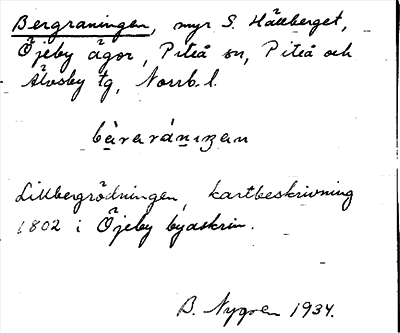 Bergraningen, myr S. Hällberget,
Öjeby ägor, Piteå sn, Piteå och
Älvsby tg, Norrb. l.
Lillbergrödningen, kartbeskrivning
1802 i Öjeby byaskrin.
B. Nygren 1934.